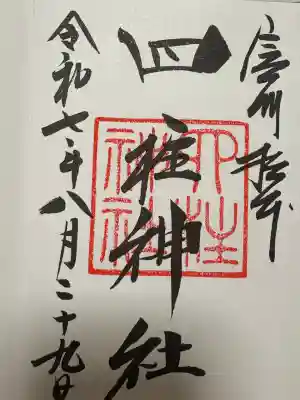 信州松本
四柱神社
四柱神社
令和七年八月二十九日